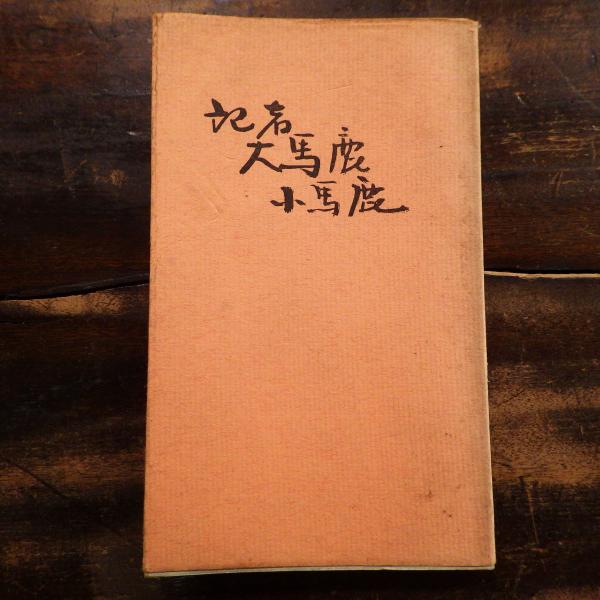 記者
大馬鹿
小馬鹿